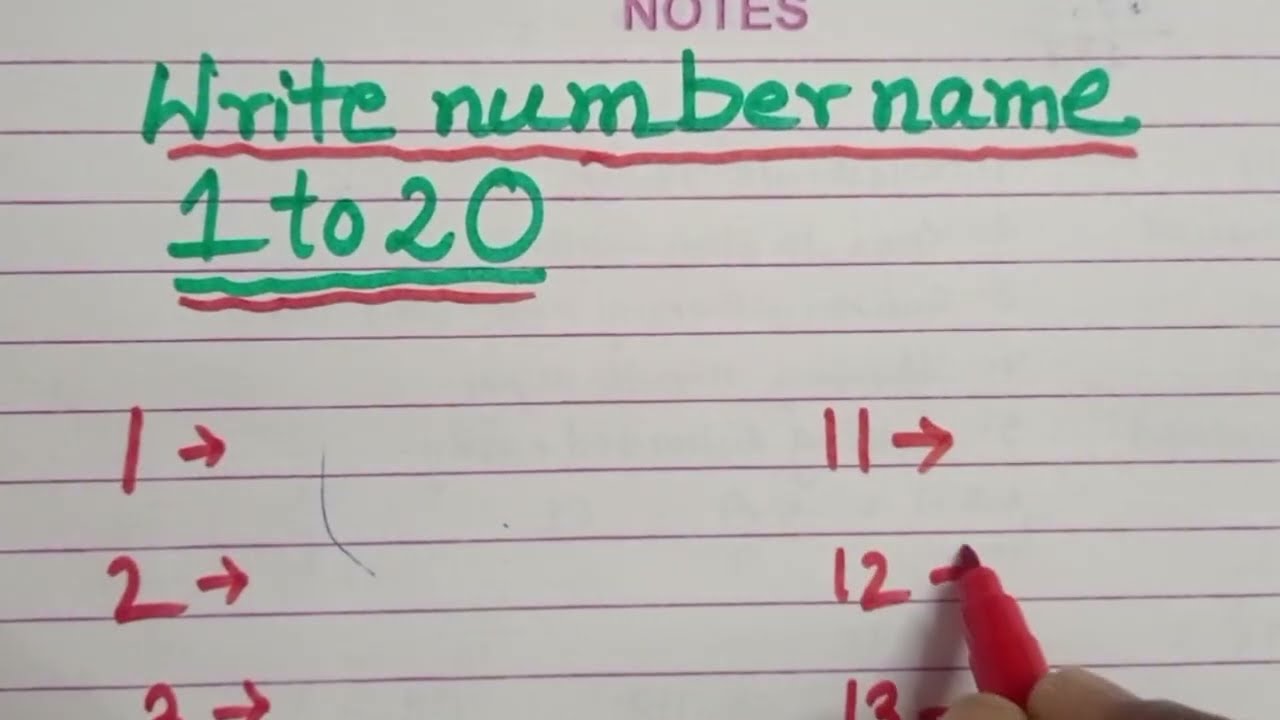 NOTES
Write number name
1 to 20
1 → 11 →
2 → 12 -
3 → 13 -